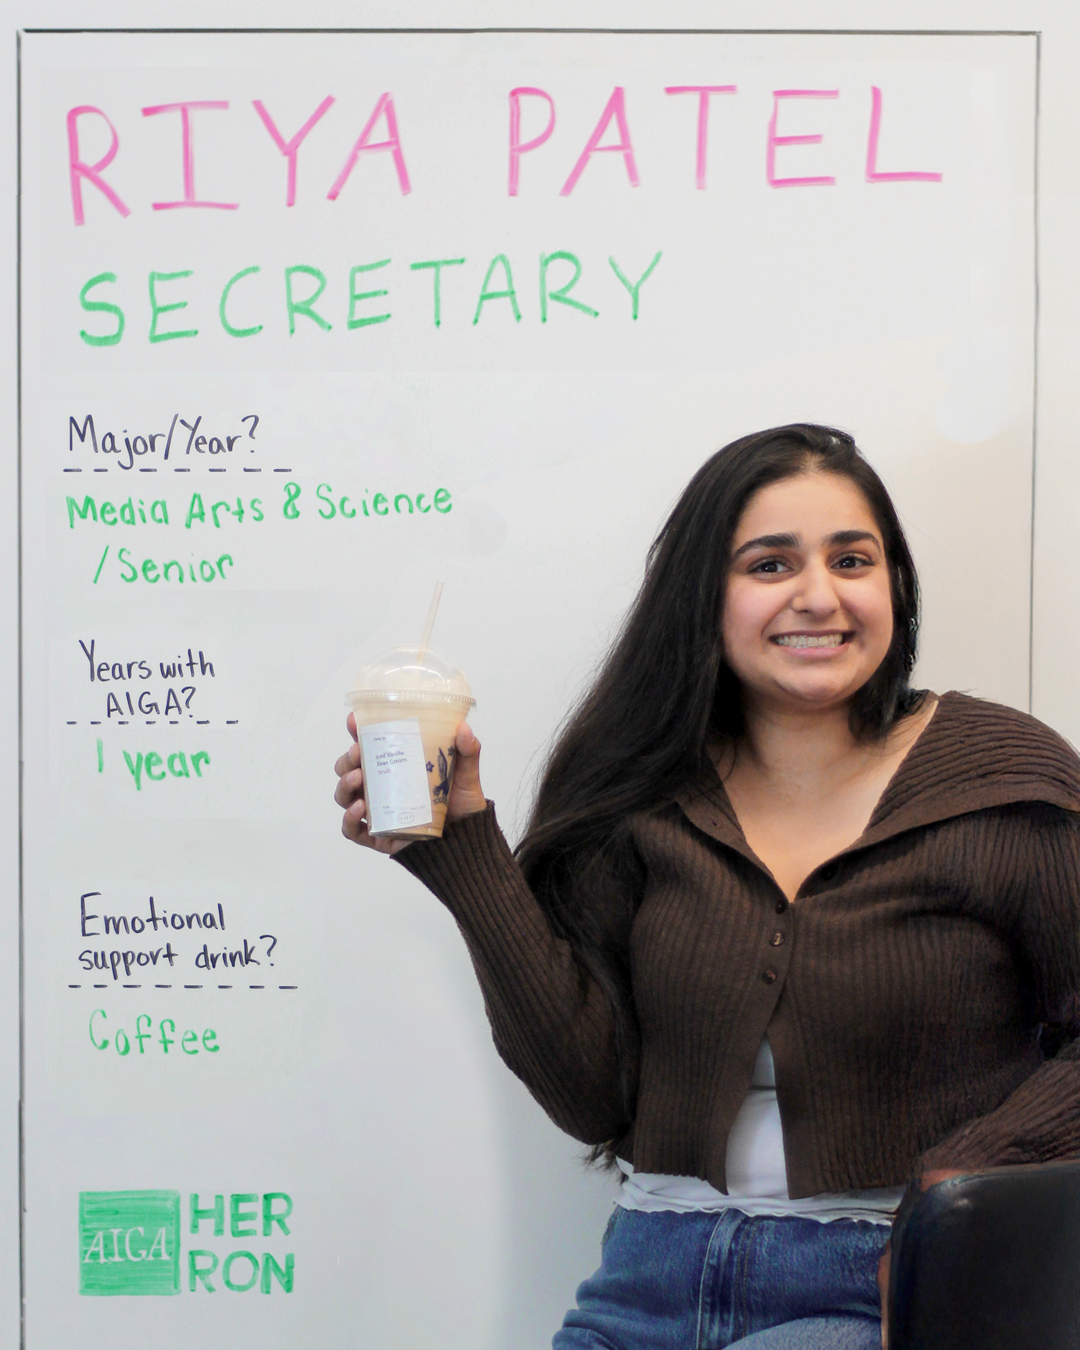 RIYA PATEL
SECRETARY
Major/Year?
Media Arts & Science
/Senior
Years with
AIGA?
1 year
Emotional
support drink?
Coffee
Iced Vanilla
Bean Cream
AIGA
HER
RON